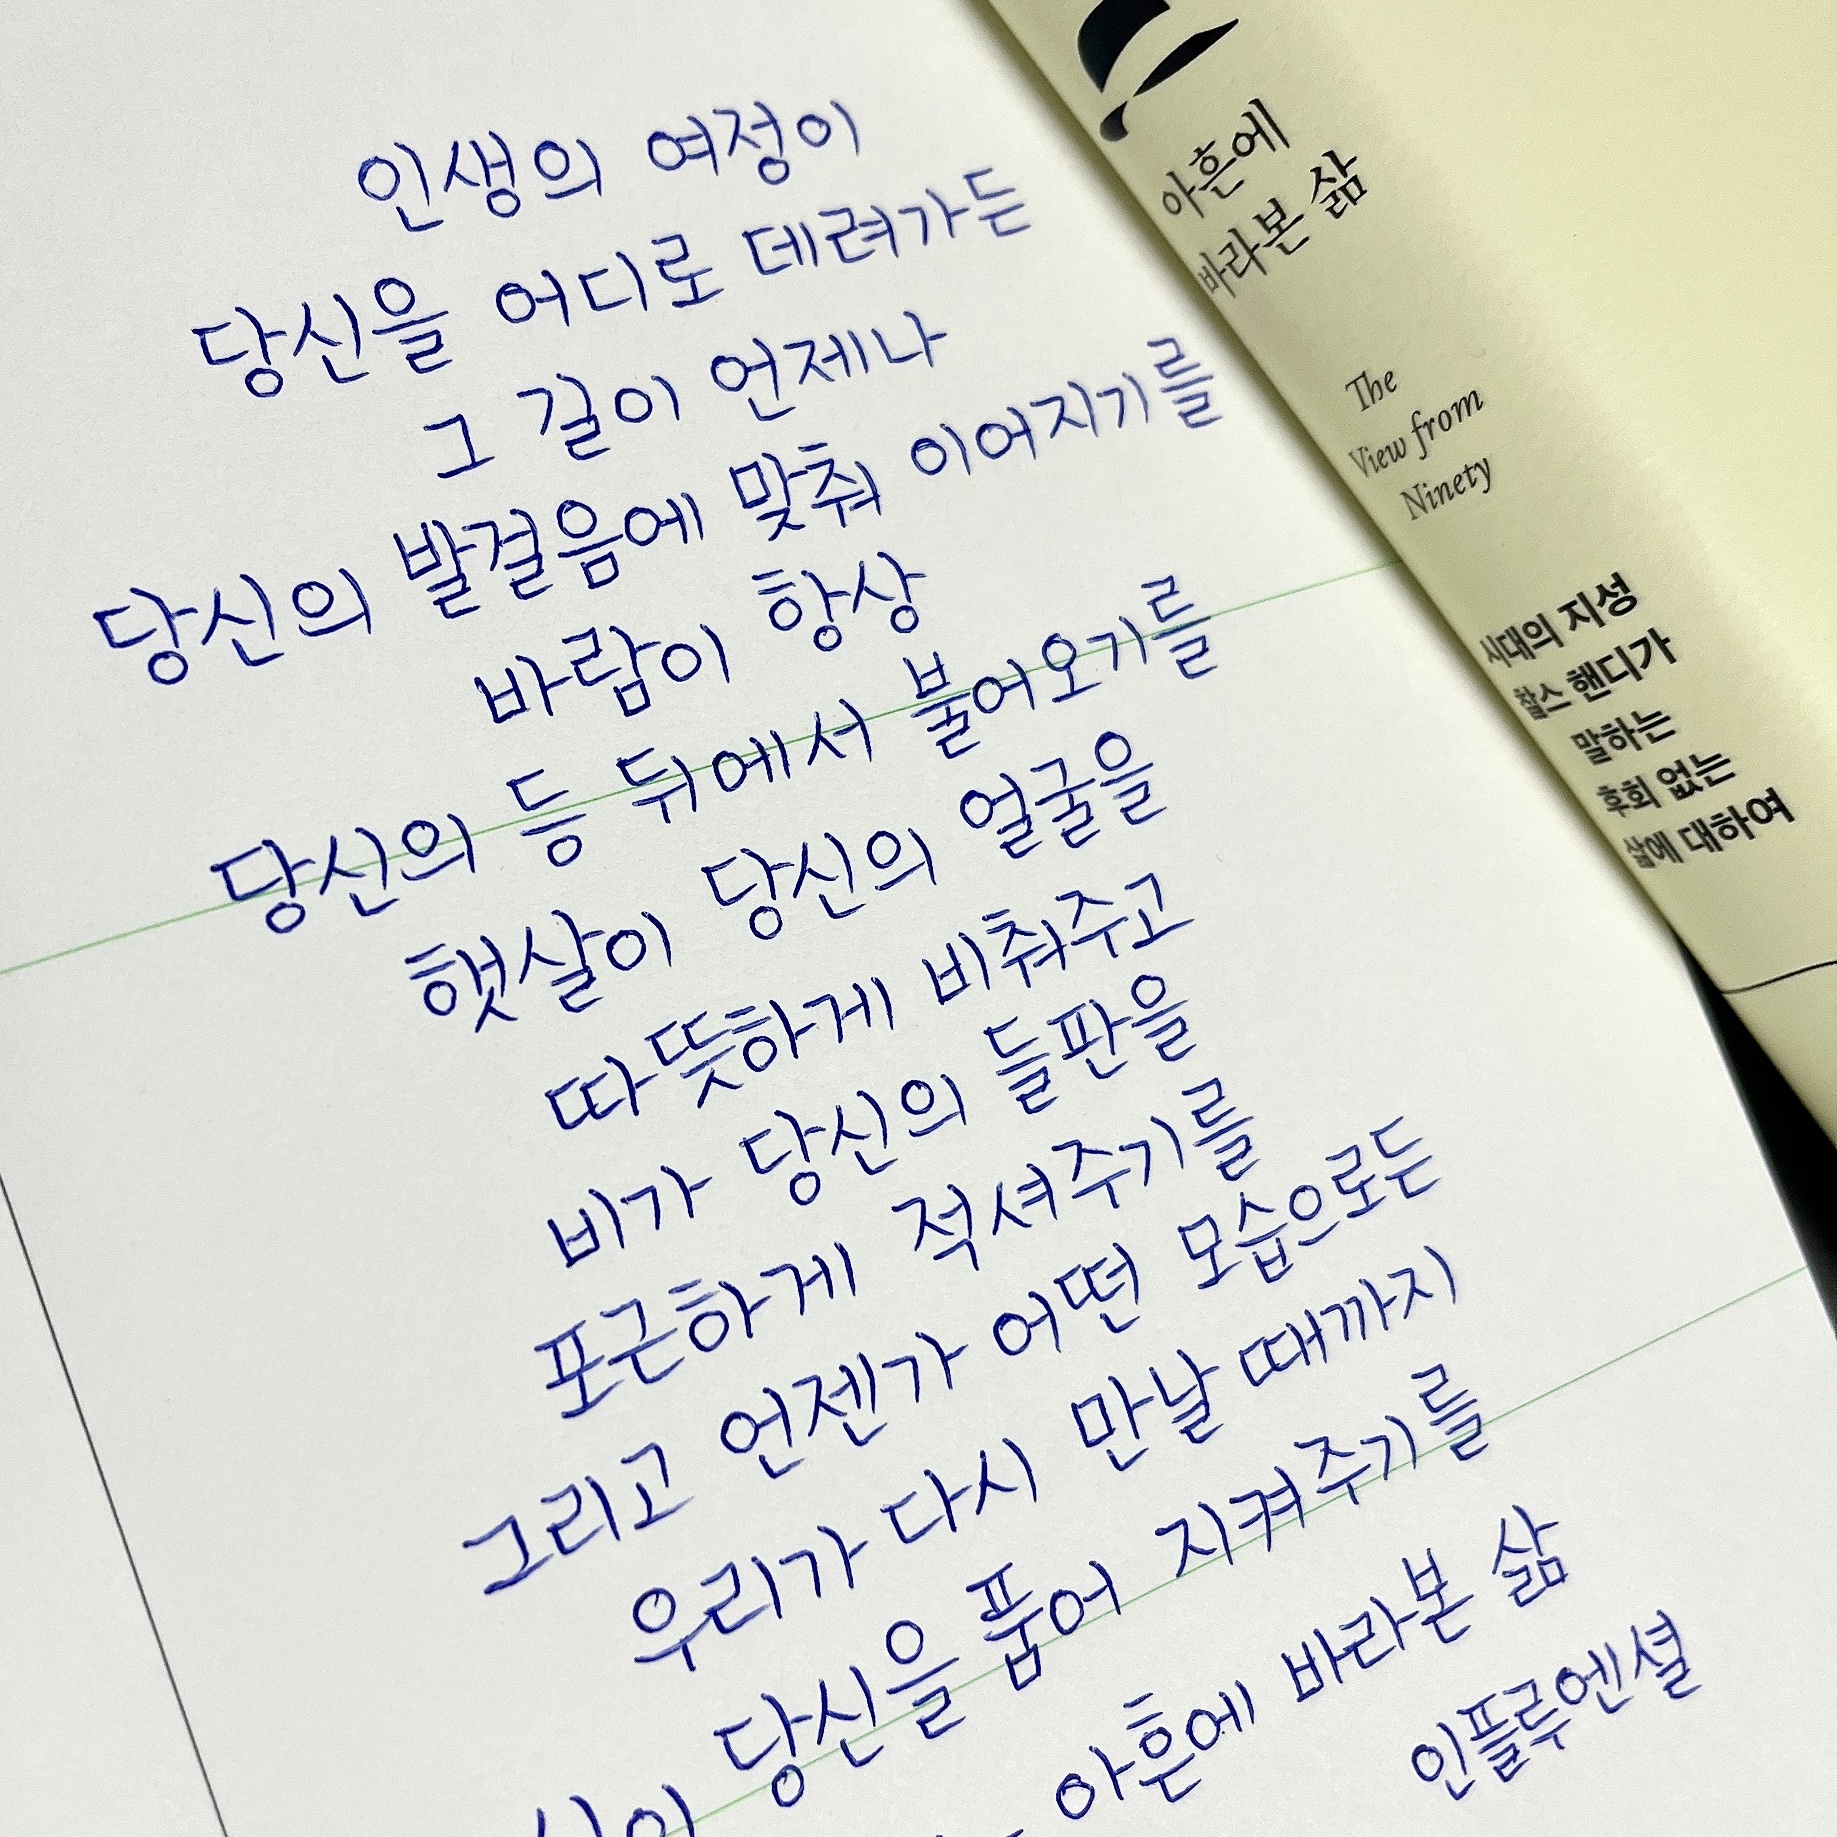 인생의 여정이
당신을 어디로 데려가든
그 길이 언제나
당신의 발걸음에 맞춰 이어지기를
바람이 항상
당신의 등 뒤에서 불어오기를
햇살이 당신의 얼굴을
따뜻하게 비춰주고
비가 당신의 들판을
포근하게 적셔주기를
그리고 언젠가 어떤 모습으로든
우리가 다시 만날 때까지
당신을 품어 지켜주기를
아흔에 바라본 삶
인플루엔셜
아흔에
바라본 삶
The
View from
Ninety
시대의 지성
찰스 핸디가
말하는
후회 없는
삶에 대하여